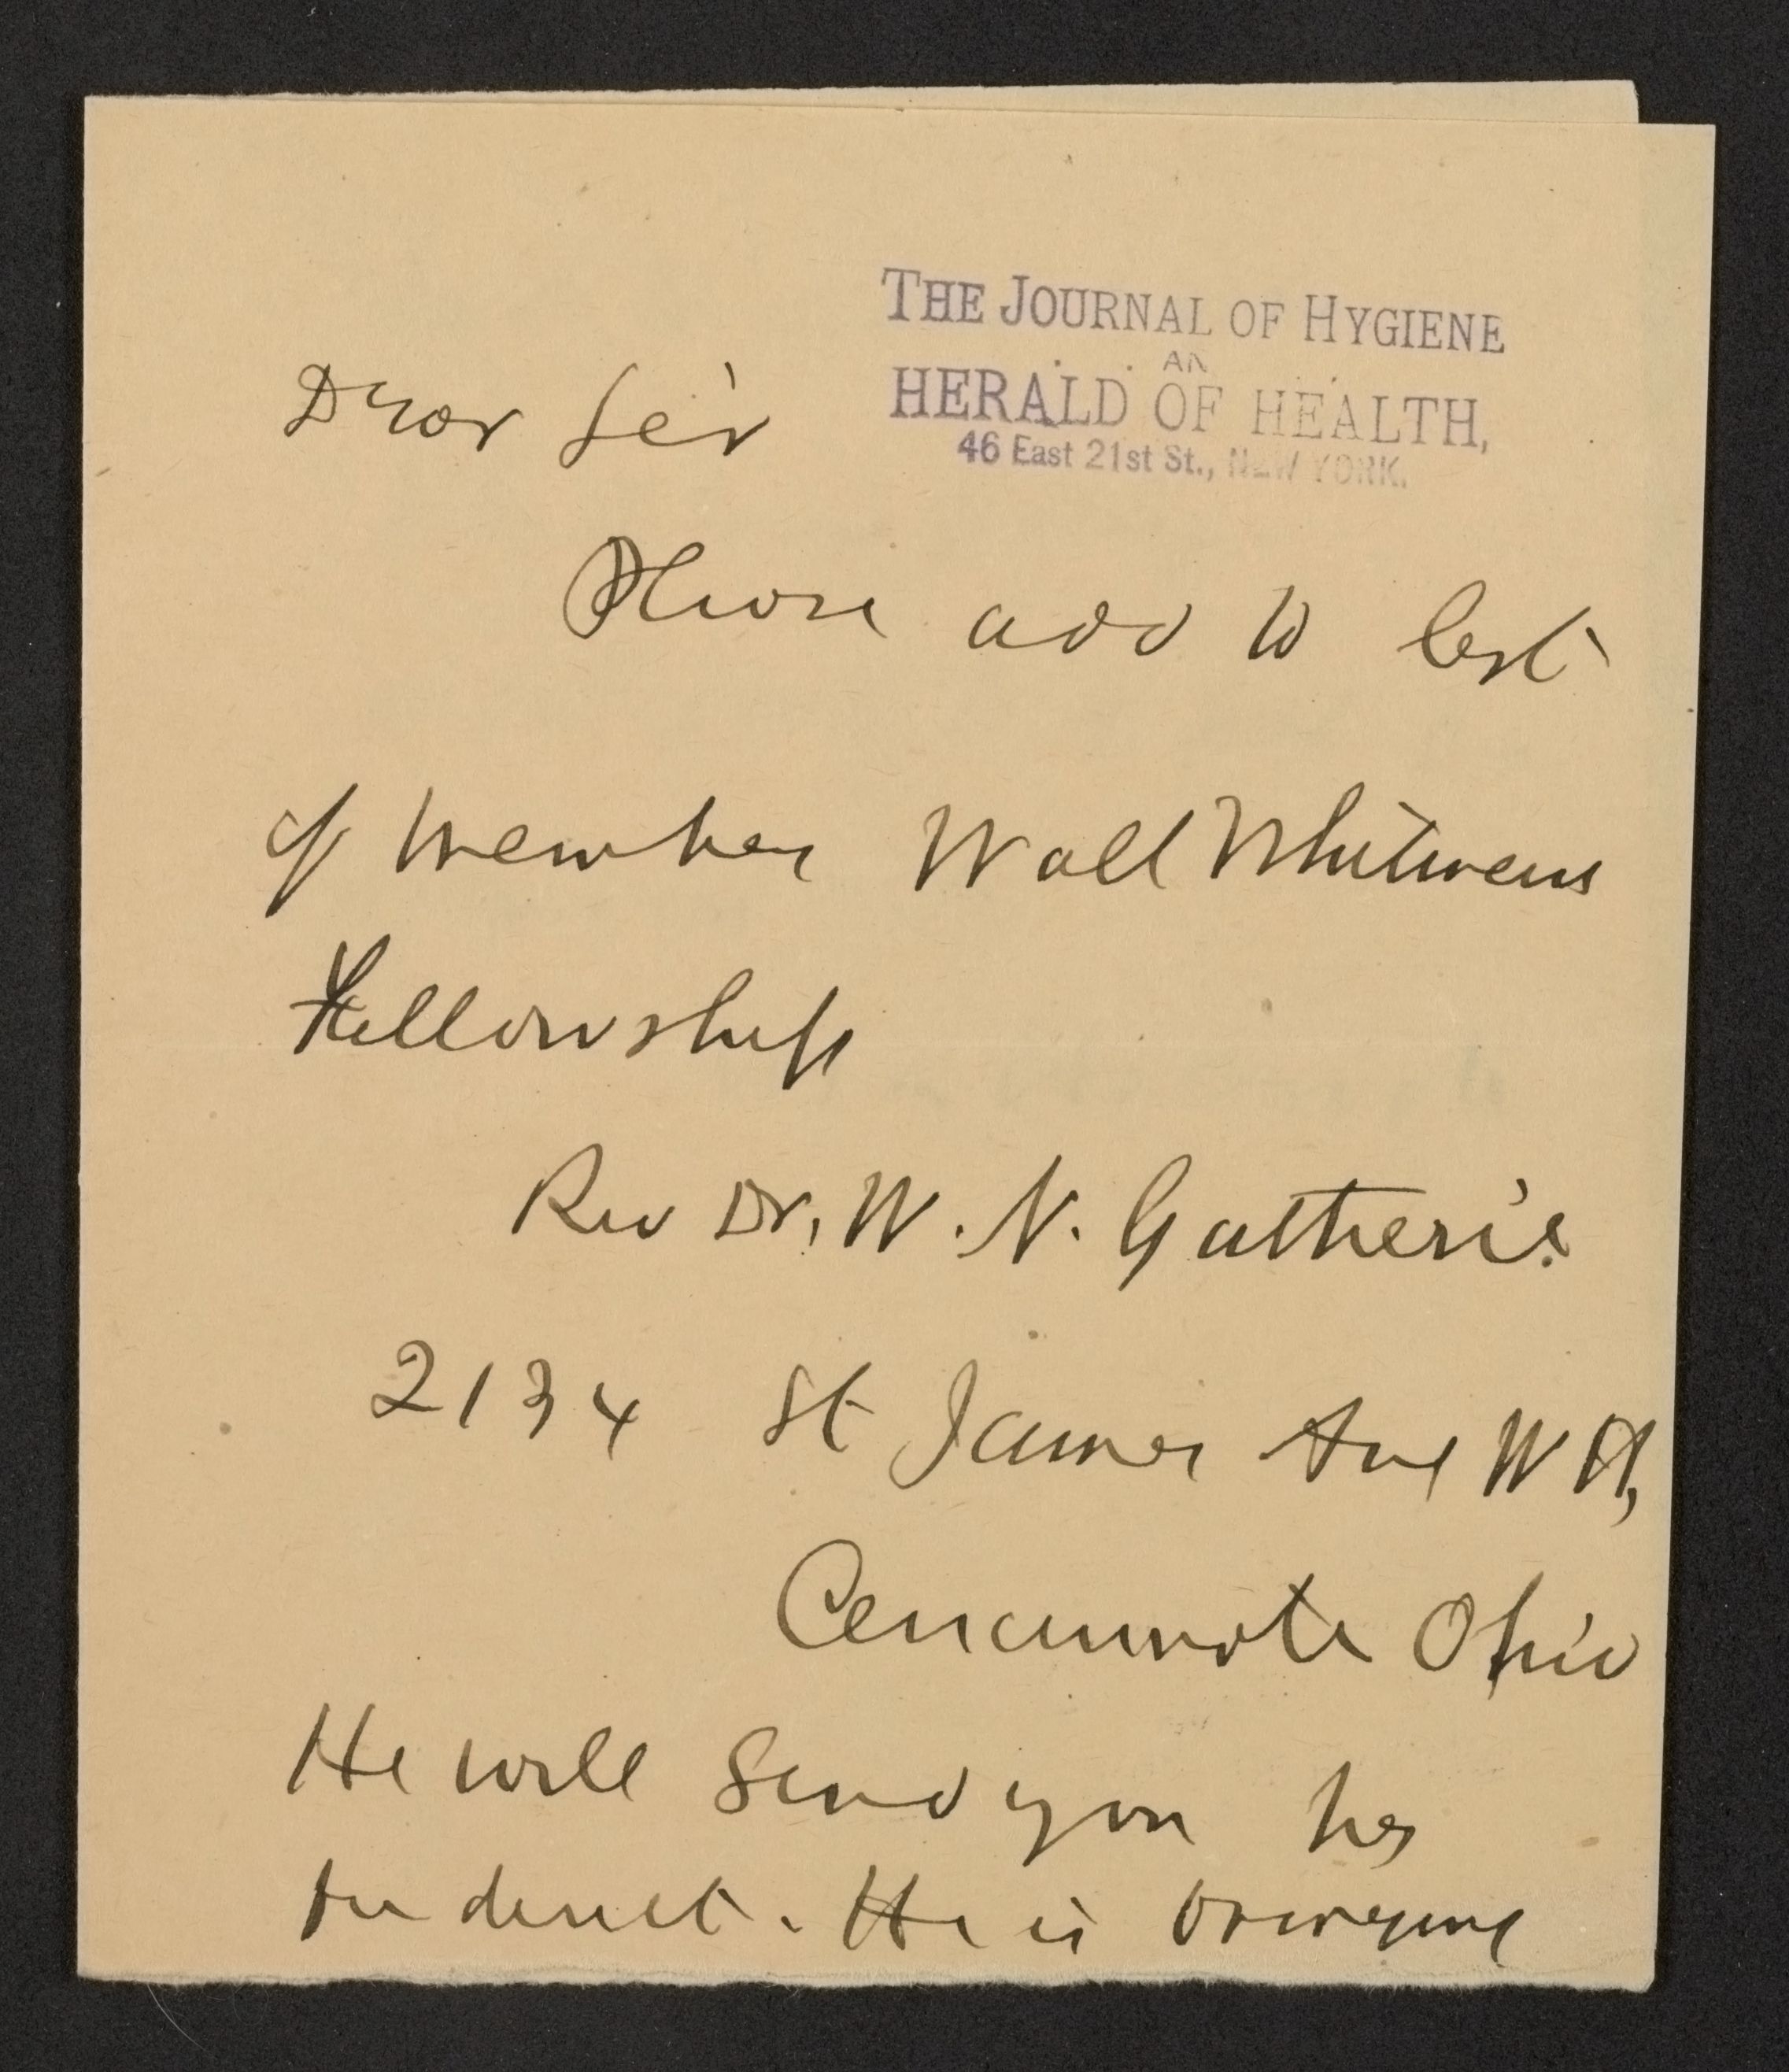 THE JOURNAL OF HYGIENE
AN
HERALD OF HEALTH,
46 East 21st St., NEW YORK.
Dear Sir
Please add to list
of members Walt Whitman
Fellowship
Rev Dr. W. N. Gutherie.
2134 St James Ave W H,
Cincinnati Ohio
He will send you his
fee direct. He is